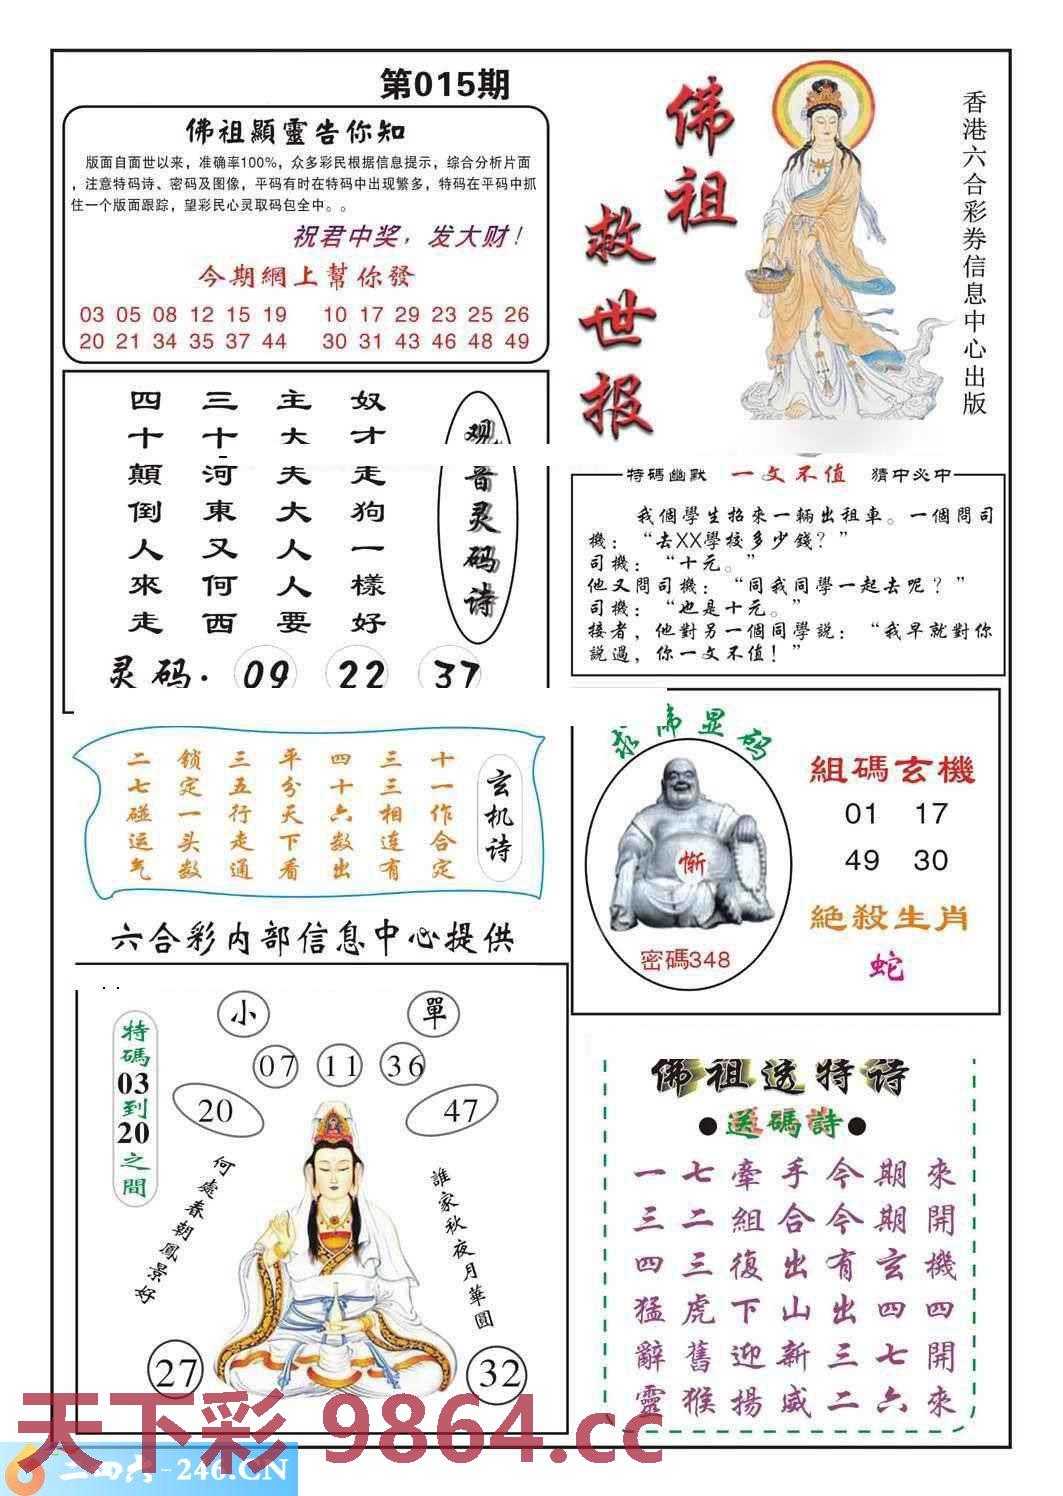 第015期
佛祖顯靈告你知
版面自面世以来，准确率100%，众多彩民根据信息提示，综合分析片面
，注意特码诗、密码及图像，平码有时在特码中出现繁多，特码在平码中抓
住一个版面跟踪，望彩民心灵取码包全中。。
祝君中奖，发大财！
今期網上幫你發
03 05 08 12 15 19 10 17 29 23 25 26
20 21 34 35 37 44 30 31 43 46 48 49
佛祖
救世报
香港六合彩券信息中心出版
观音灵码诗
奴才走狗一樣好
主大夫大人人要
三十河東又何西
四十顛倒人來走
灵码. 09 22 37
特碼幽默 一文不值 猜中必中
我個學生招來一輛出租車。一個問司
機：“去XX學校多少錢？”
司機：“十元。”
他又問司機：“同我同學一起去呢？”
司機：“也是十元。”
接者，他對另一個同學説：“我早就對你
説過，你一文不值！”
玄机诗
十一作合定
三三相连有
四十六数出
平分天下看
三五行走通
锁定一头数
二七碰运气
六合彩内部信息中心提供
显码
惭
密碼348
組碼玄機
01 17
49 30
絕殺生肖
蛇
特碼03到20之間
小 單
07 11 36
20 47
何處春朝鳳景好
誰家秋夜月華圓
27 32
佛祖透特诗
●送碼詩●
一七牽手今期來
三二組合今期開
四三復出有玄機
猛虎下山出四四
辭舊迎新三七開
靈猴揚威二六來
天下彩 9864.cc
二四六-246.CN